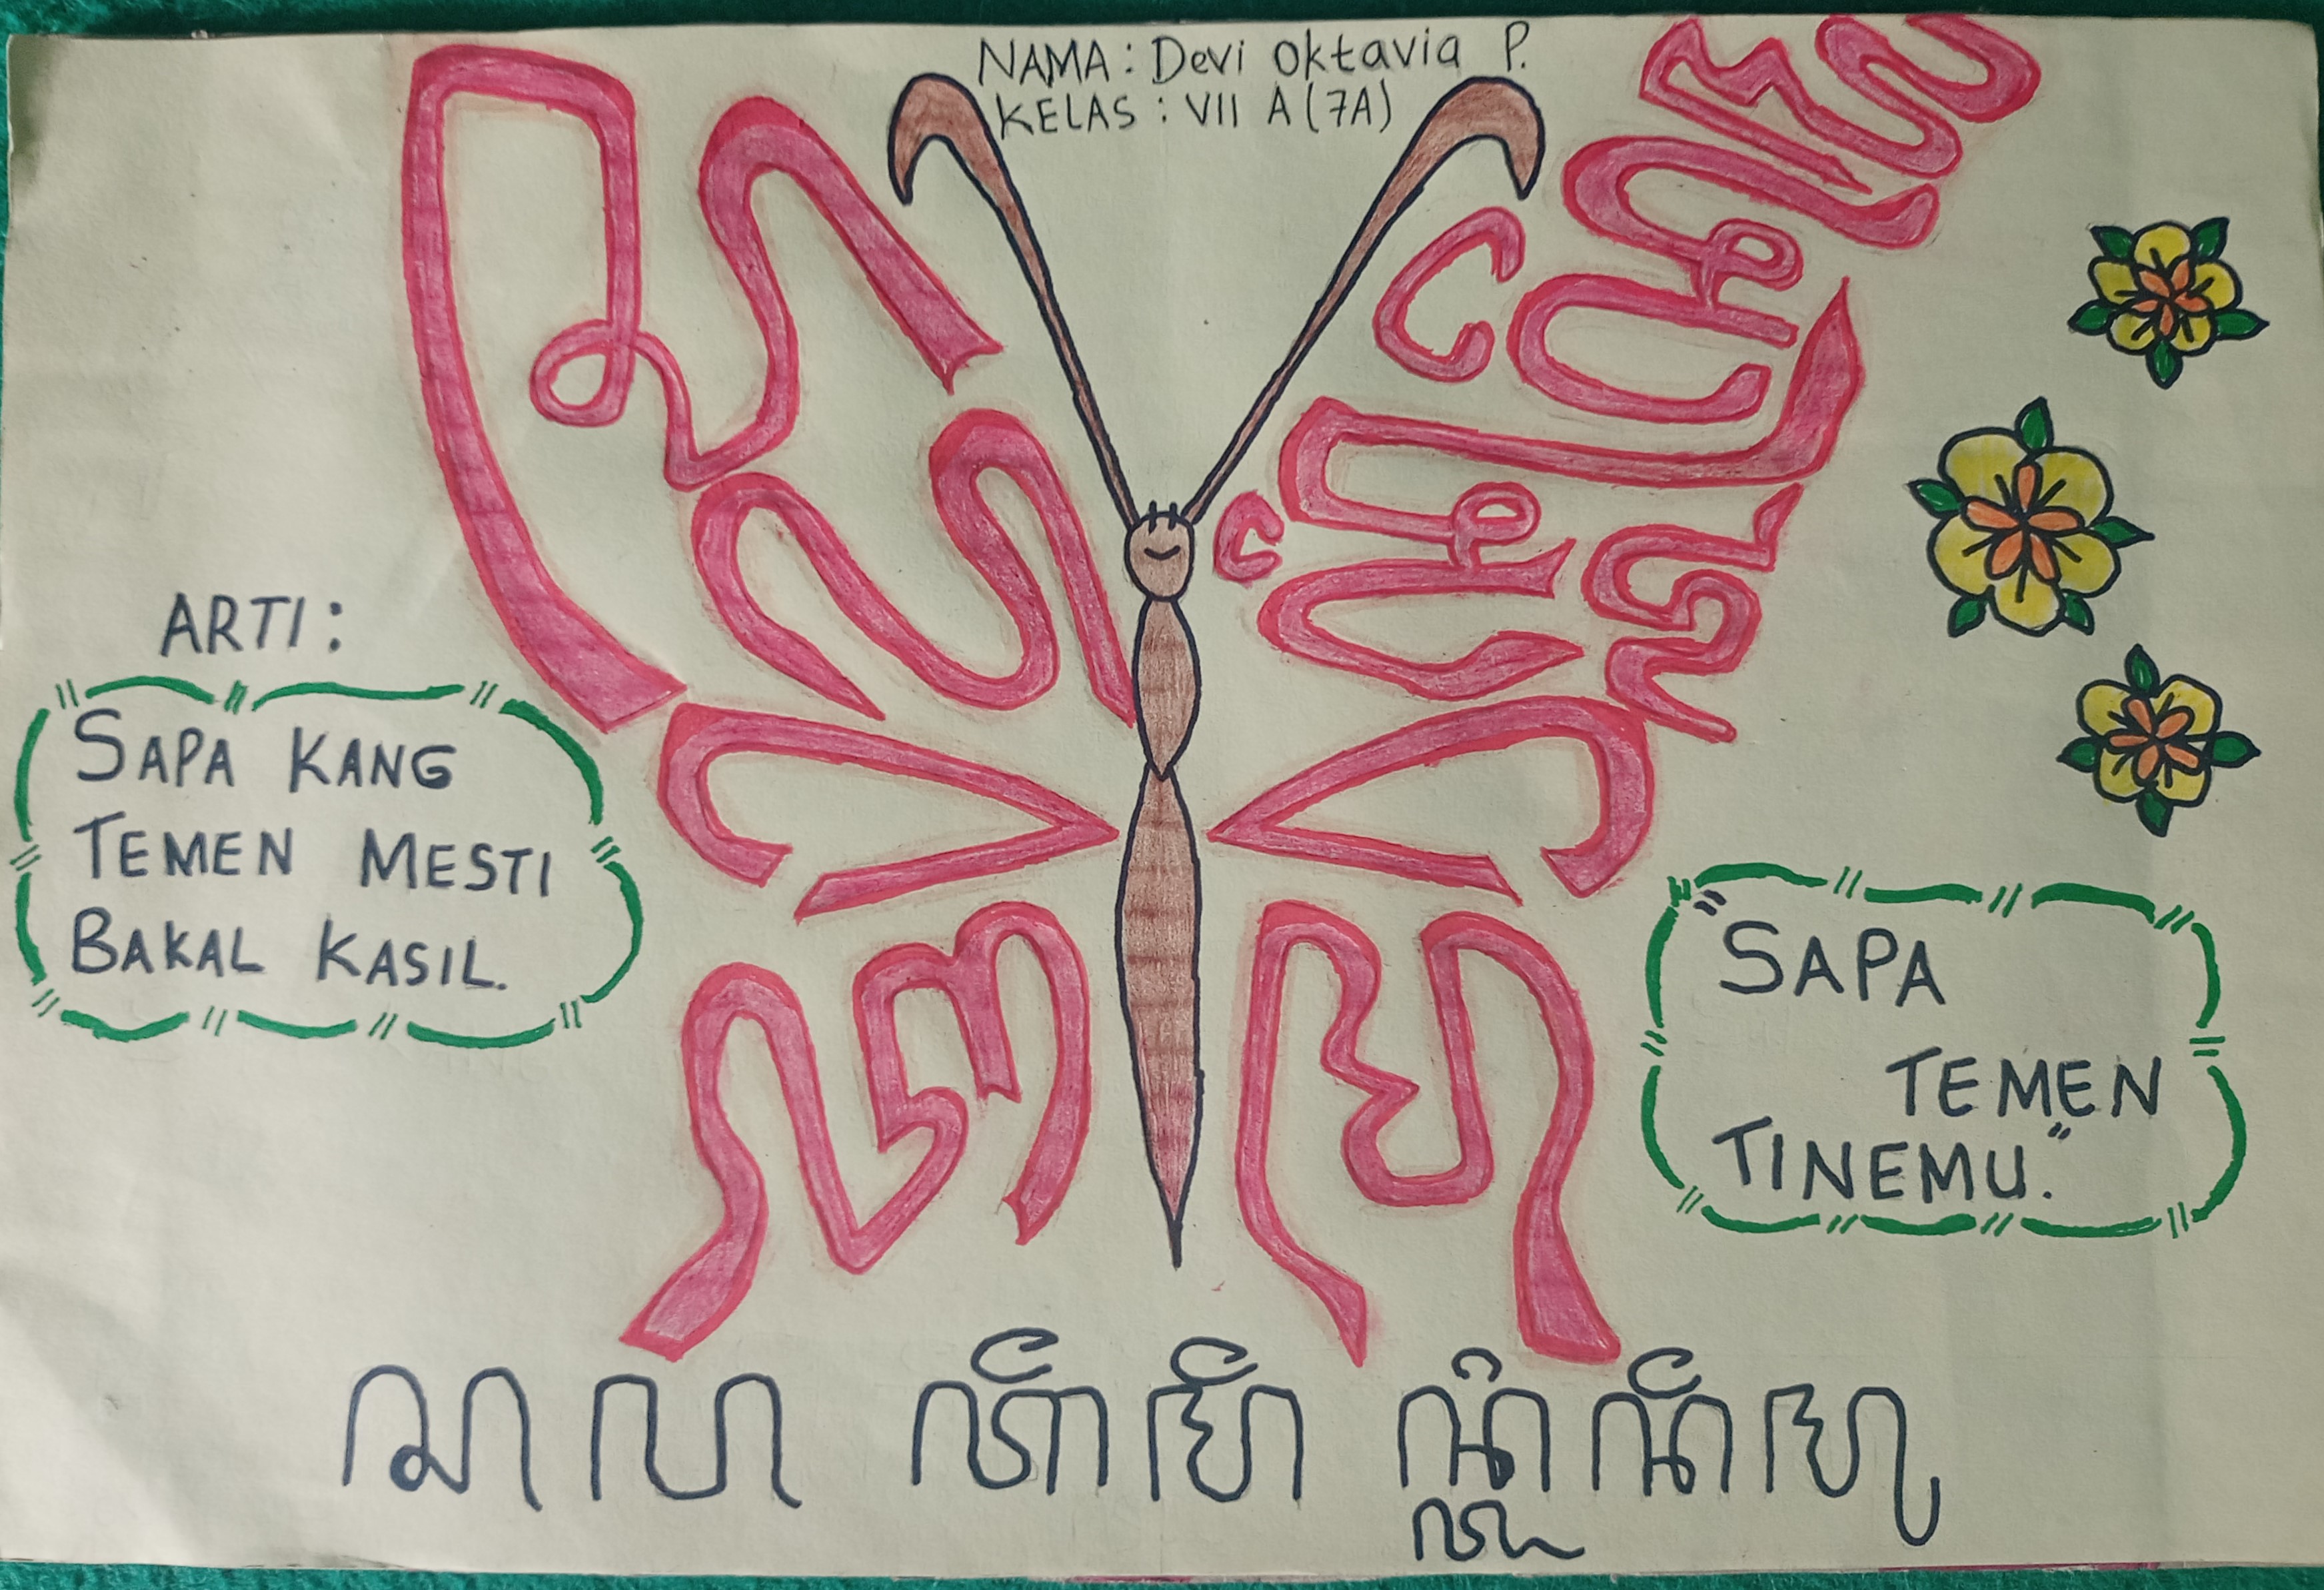 NAMA : Devi Oktavia P.
KELAS : VII A (7A)
ARTI :
SAPA KANG
TEMEN MESTI
BAKAL KASIL.
"SAPA
TEMEN
TINEMU."
ꦱꦥ ꦠꦼꦩꦼ ꦤ꧀ꦠꦶꦤꦼꦩꦸ